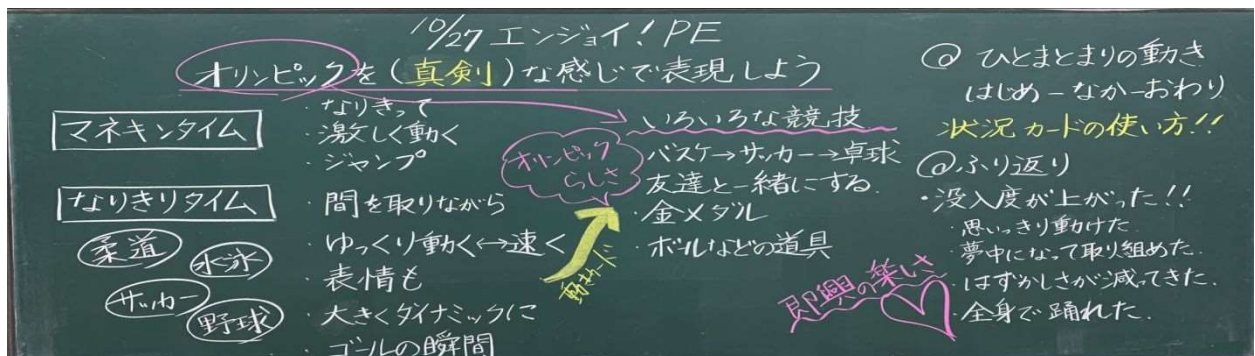 10/27 エンジョイ！PE
オリンピックを(真剣)な感じで表現しよう
マネキンタイム
・なりきって
・激しく動く
・ジャンプ
なりきりタイム
柔道
水泳
サッカー
野球
・間を取りながら
・ゆっくり動く↔速く
・表情も
・大きくダイナミックに
・ゴールの瞬間
オリンピックらしさ
いろいろな競技
バスケ→サッカー→卓球
友達と一緒にする
・金メダル
・ボールなどの道具
即興の楽しさ
@ ひとまとまりの動き
はじめ－なか－おわり
状況カードの使い方!!
@ふり返り
・没入度が上がった!!
・思いっきり動けた
・夢中になって取り組めた.
・はずかしさが減ってきた.
・全身で踊れた.